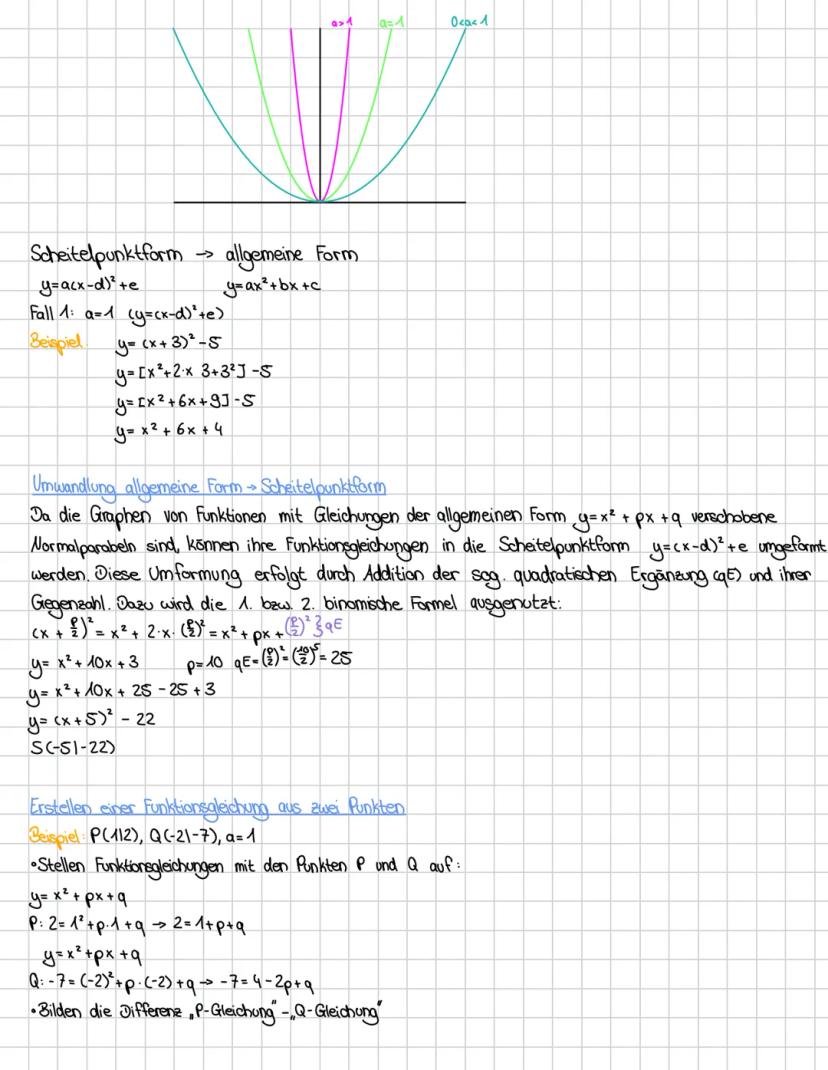 a>1 a=1 0<a<1
Scheitelpunktform → allgemeine Form
y=a(x-d)²+e y=ax²+bx+c
Fall 1: a=1 (y=(x-d)²+e)
Beispiel: y= (x+3)²-5
y=[x²+2·x 3+3²]-5
y=[x²+6x+9]-5
y= x²+6x+4
Umwandlung allgemeine Form → Scheitelpunktform
Da die Graphen von Funktionen mit Gleichungen der allgemeinen Form y=x² + px +q verschobene
Normalparabeln sind, können ihre Funktionsgleichungen in die Scheitelpunktform y=(x-d)²+e umgeformt
werden. Diese Umformung erfolgt durch Addition der sog. quadratischen Ergänzung (qE) und ihrer
Gegenzahl. Dazu wird die 1. bzw. 2. binomische Formel ausgenutzt:
(x + p/2)² = x² + 2·x·(p/2)² = x² + px + (p/2)² } qE
y= x² + 10x + 3 p=10 qE=(p/2)²=(10/2)⁵= 25
y= x² + 10x + 25 - 25 + 3
y= (x+5)² - 22
S(-5|-22)
Erstellen einer Funktionsgleichung aus zwei Punkten
Beispiel: P(1|2), Q(-2|-7), a=1
•Stellen Funktionsgleichungen mit den Punkten P und Q auf:
y= x² + px+q
P: 2= 1²+p·1+q → 2=1+p+q
y=x²+px+q
Q: -7=(-2)²+p·(-2)+q → -7=4-2p+q
•Bilden die Differenz „P-Gleichung"-„Q-Gleichung"